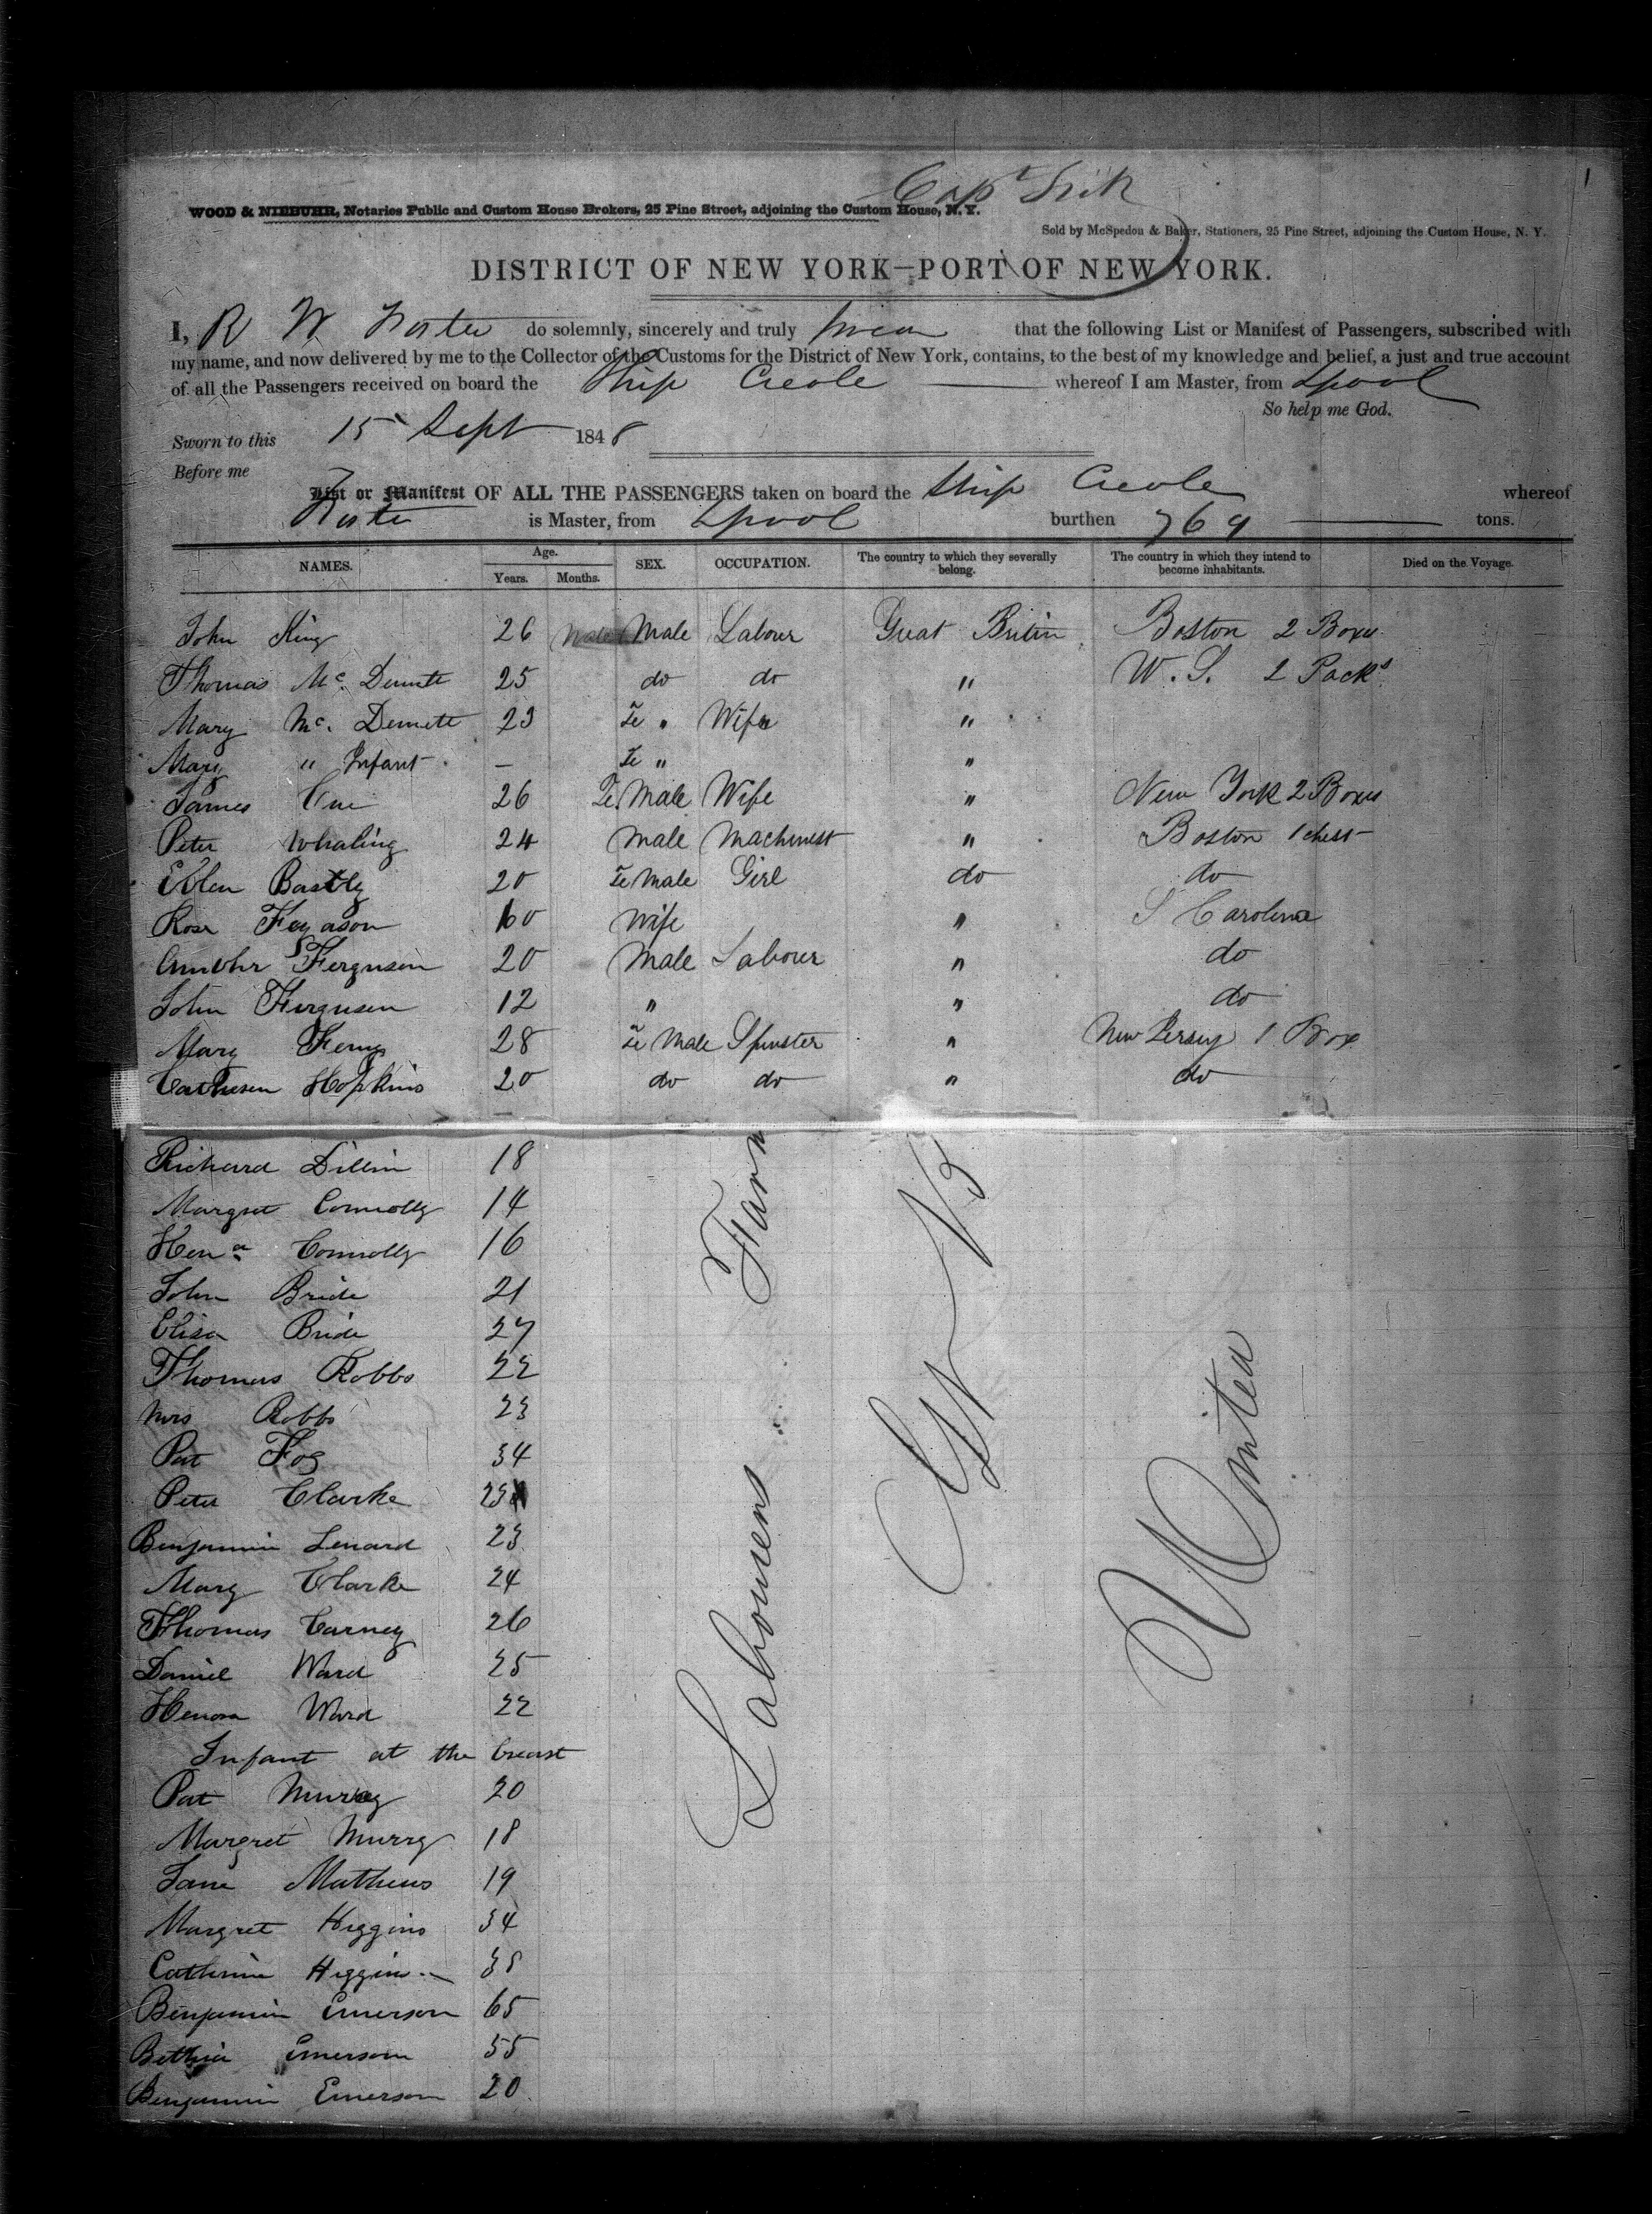 1
Capt
WOOD & NIEBUHR, Notaries Public and Custom House Brokers, 25 Pine Street, adjoining the Custom House, N.Y.
Sold by McSpedon & Baker, Stationers, 25 Pine Street, adjoining the Custom House, N. Y.
DISTRICT OF NEW YORK—PORT OF NEW YORK.
I, R W do solemnly, sincerely and truly swear that the following List or Manifest of Passengers, subscribed with
my name, and now delivered by me to the Collector of the Customs for the District of New York, contains, to the best of my knowledge and belief, a just and true account
of all the Passengers received on board the Ship Creole whereof I am Master, from Lpool
So help me God.
Sworn to this 15 Sept 1848
Before me
List or Manifest OF ALL THE PASSENGERS taken on board the Ship Creole whereof
is Master, from Lpool burthen 769 tons.
NAMES. Age. Years. Months. SEX. OCCUPATION. The country to which they severally belong. The country in which they intend to become inhabitants. Died on the Voyage.
John King 26 Male Labourer Great Britin Boston 2 Boxes
Thomas Mc. 25 do do " 2 Packs
Mary Mc. 23 Fe " Wife "
Mary " Infant — Fe " "
James 26 Fe Male Wife " New York 2 Boxes
Peter Whaling 24 Male Machinest " Boston 1 chest
Ellen 20 Fe Male Girl do do
Rose 60 Wife " S Carolina
Ferguson 20 Male Labourer " do
John Ferguson 12 " " do
Mary 28 Fe Male Spinster " New Jersey 1 Box
Hopkins 20 do do " do
Richard Dillin 18
Margret Connolly 14
Honа Connolly 16
John Bride 21
Elisa Bride 27
Thomas Robbs 22
Mrs Robbs 23
Pat Fog 34
Peter Clarke 23
Benjamin Lenard 23
Mary Clarke 24
Thomas Carney 26
Daniel Ward 25
Henora Ward 22
Infant at the breast
Pat Murray 20
Margret Murry 18
Jane Mathews 19
Margret Higgins 34
Catherine Higgins 38
Benjamin Emerson 65
Bethia Emerson 55
Benjamin Emerson 20
Labourers Farm
Gt B
United